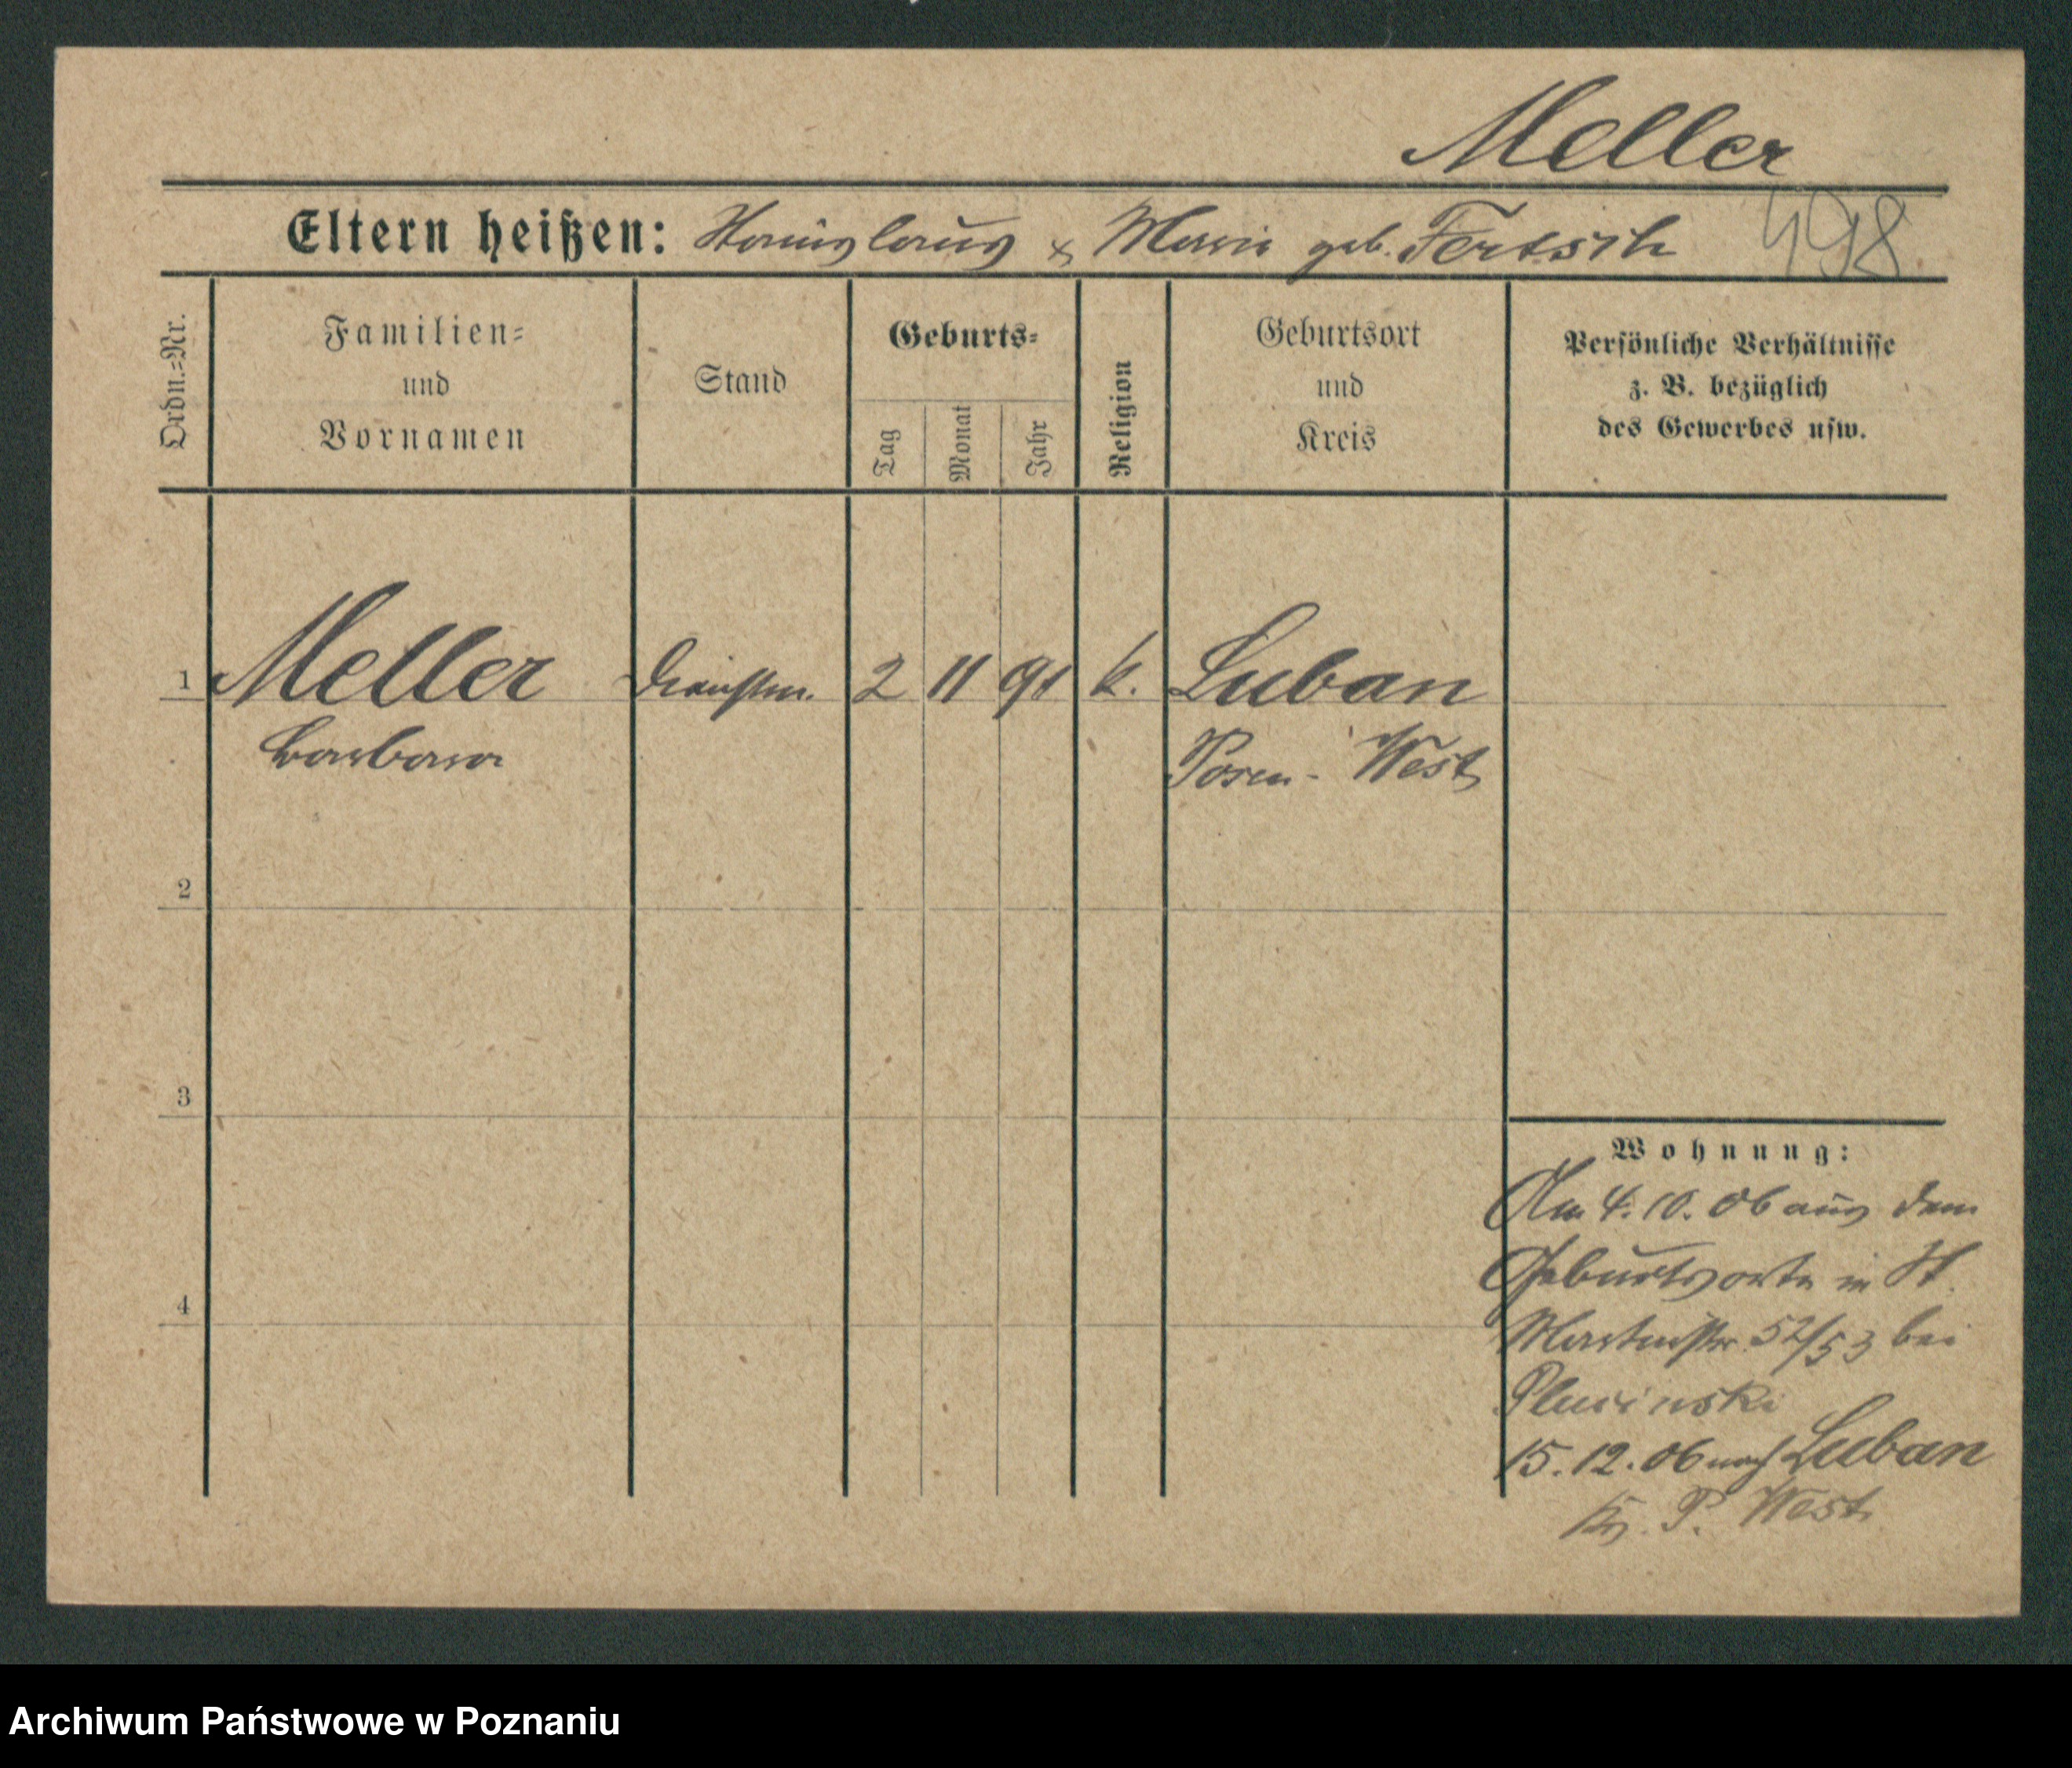 Meller
Eltern heißen: Stanislaus & Marie geb. Fertsch 498
Ordn.-Nr.
Familien-
und
Vornamen
Stand
Geburts-
Tag
Monat
Jahr
Religion
Geburtsort
und
Kreis
Persönliche Verhältnisse
z. B. bezüglich
des Gewerbes usw.
1 Meller Dienstm. 2 11 91 k. Luban
Barbara Posen-West
2
3
4
Wohnung:
Am 4.10.06 aus dem
Geburtsorte in St.
Martinstr. 52/53 bei
15.12.06 nach Luban
Kr. P. West
Archiwum Państwowe w Poznaniu